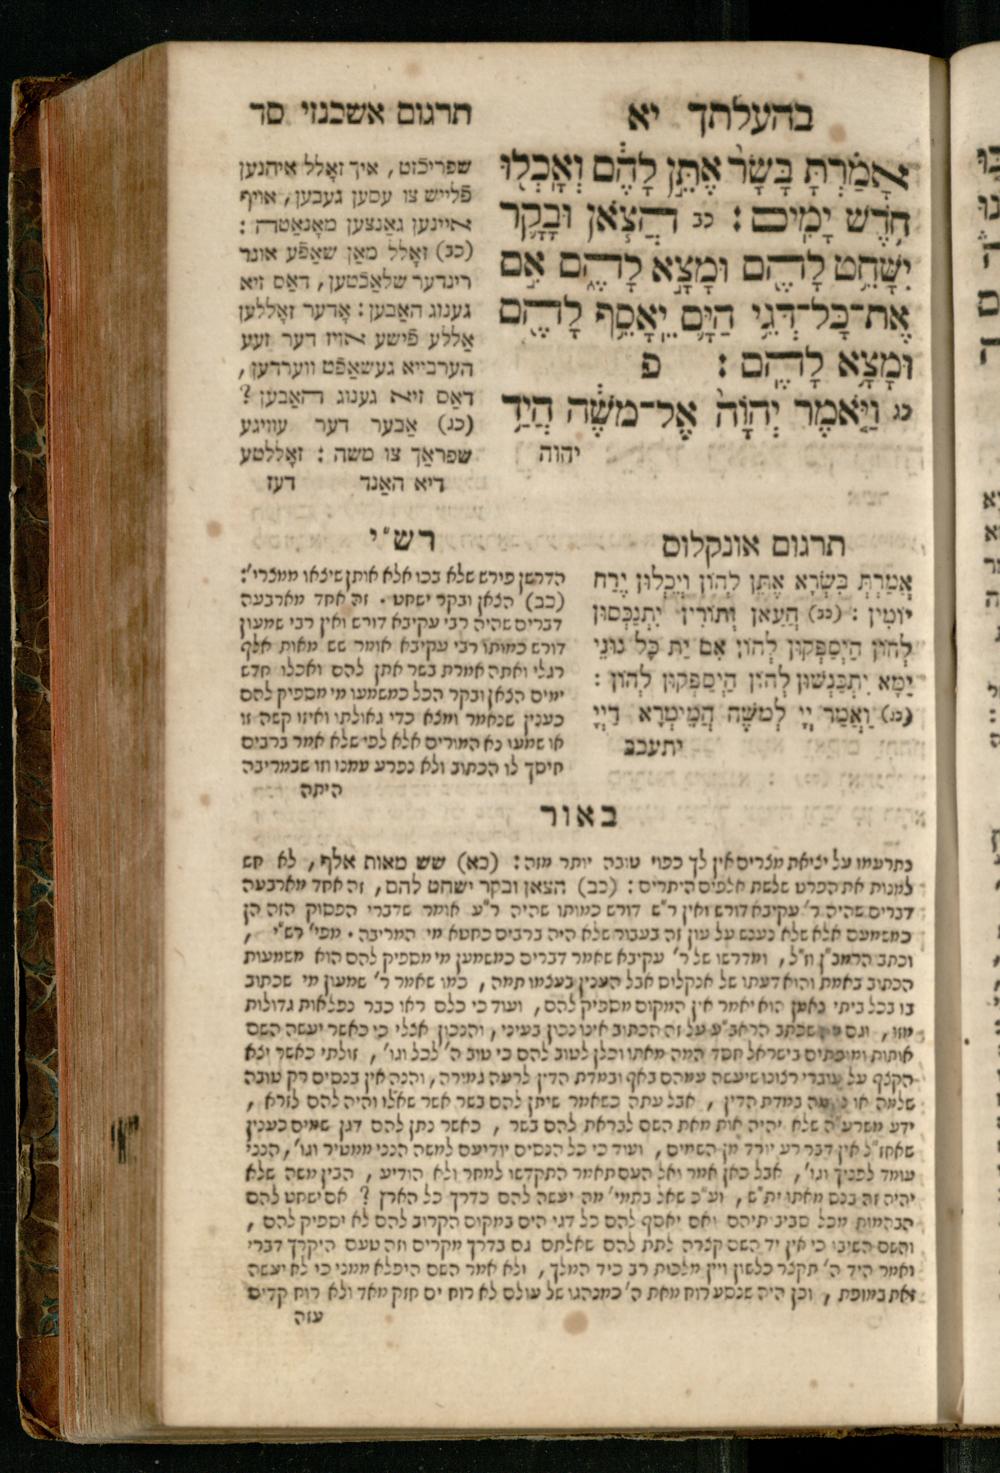 בהעלתך יא
תרגום אשכנזי סד
אָמַ֗רְתָּ בָּשָׂר֙ אֶתֵּ֣ן לָהֶ֔ם וְאָכְל֖וּ
חֹ֥דֶשׁ יָמִֽים׃ כב הֲצֹ֧אן וּבָקָ֛ר
יִשָּׁחֵ֥ט לָהֶ֖ם וּמָצָ֣א לָהֶ֑ם אִ֣ם
אֶת־כָּל־דְּגֵ֥י הַיָּ֛ם יֵאָסֵ֥ף לָהֶ֖ם
וּמָצָ֥א לָהֶֽם׃ פ
כג וַיֹּ֤אמֶר יְהֹוָה֙ אֶל־מֹשֶׁ֔ה הֲיַ֥ד
יהוה
שפריכֿזט, איך זאָלל איהנען
פֿלייש צו עסען געבען, אויף
איינען גאַנצען מאָנאַטה:
(כב) זאָלל מאַן שאַפֿע אונד
רינדער שלאַכֿטען, דאַס זיא
גענוג האַבען: אָדער זאָללען
אַללע פֿישע אויז דער זעע
הערבייא געשאַפֿט ווערדען,
דאַס זיא גענוג האַבען?
(כג) אַבער דער עוויגע
שפראַך צו משה: זאָללטע
דיא האַנד דעז
תרגום אונקלוס
אֲמַרְתְּ בִּשְׂרָא אֶתֵּן לְהוֹן וְיֵכְלוּן יְרַח
יוֹמִין: (כב) הֲעָאן וְתוֹרִין יִתְנַכְּסוּן
לְהוֹן הַיְסַפְּקוּן לְהוֹן אִם יַת כָּל נוּנֵי
יַמָּא יִתְכַּנְשׁוּן לְהוֹן הַיְסַפְּקוּן לְהוֹן:
(כג) וַאֲמַר יְיָ לְמֹשֶׁה הֲמֵימְרָא דַיְיָ
יתעכב
רש"י
הדרשן פירש שלא בכו אלא אותן שיצאו ממצרי':
(כב) הצאן ובקר ישחט. זה אחד מארבעה
דברים שהיה רבי עקיבא דורש ואין רבי שמעון
דורש כמותו רבי עקיבא אומר שש מאות אלף
רגלי ואתה אמרת בשר אתן להם ואכלו חדש
ימים הצאן ובקר הכל כמשמעו מי מספיק להם
כענין שנאמר ומצא כדי גאולתו ואיזו קשה זו
או שמעו נא המורים אלא לפי שלא אמר ברבים
חיסך לו הכתוב ולא נפרע ממנו וזו שבמריבה
היתה
באור
נתרעמו על יציאת מצרים אין לך כפוי טובה יותר מזה: (כא) שש מאות אלף, לא חש
למנות את הפרט שלשת אלפים היתרים: (כב) הצאן ובקר ישחט להם, זה אחד מארבעה
דברים שהיה ר' עקיבא דורש ואין ר"ש דורש כמותו שהיה ר"ע אומר שדברי הפסוק הזה הן
כמשמעם אלא שלא נענש על עון זה בעבור שלא היה ברבים כחטא מי המריבה. מפי' רש"י,
וכתב הרמב"ן ז"ל, ומדרשו של ר' עקיבא שאמר דברים כמשמען מי מספיק להם הוא משמעות
הכתוב באמת והוא דעתו של אנקלוס אבל הענין בעצמו תמה, כמו שאמר ר' שמעון מי שכתוב
בו בכל ביתי נאמן הוא יאמר אין המקום מספיק להם, ועוד כי כלם ראו כבר נפלאות גדולות
מזו, וגם מה שכתב הראב"ע על זה הכתוב איננו נכון בעיני, והנכון אצלי כי כאשר יעשה השם
אותות ומופתים בישראל חסד המה מאתו וכלן לטוב להם כי טוב ה' לכל וגו', זולתי כאשר יצא
הקצף על עוברי רצונו שיעשה עמהם באף ובמדת הדין לרעה גמורה, והנה אין בנסים רק טובה
שלמה או במדת הדין, אבל עתה כשאמר שיתן להם בשר אשר שאלו והיה להם לזרא,
ידע משרע"ה שלא יהיה אות מאת השם לבראת להם בשר, כאשר נתן להם דגן שמים כענין
שאחז"ל אין דבר רע יורד מן השמים, ועוד כי כל הנסים יודיעם למשה הנני ממטיר וגו', הנני
עומד לפניך וגו', אבל כאן אמר ואל העם תאמר התקדשו למחר ולא הודיע, הבין משה שלא
יהיה זה בנס מאתו ית"ש, וע"כ שאל בתמי' מה יעשה להם כדרך כל הארץ? אם ישחט להם
הבהמות מכל סביבותיהם ואם יאסף להם כל דגי הים במקום הקרוב להם לא יספיק להם,
והשם השיבו כי אין יד השם קצרה לתת להם שאלתם גם בדרך מקרים וזה טעם היקרך דברי
ואמר היד ה' תקצר כלשון ויין מלכות רב כיד המלך, ולא אמר השם היפלא ממני כי לא יעשה
זאת במופת, וכן היה שנסע רוח מאת ה' כמנהגו של עולם לא רוח ים חזק מאד ולא רוח קדים
עזה